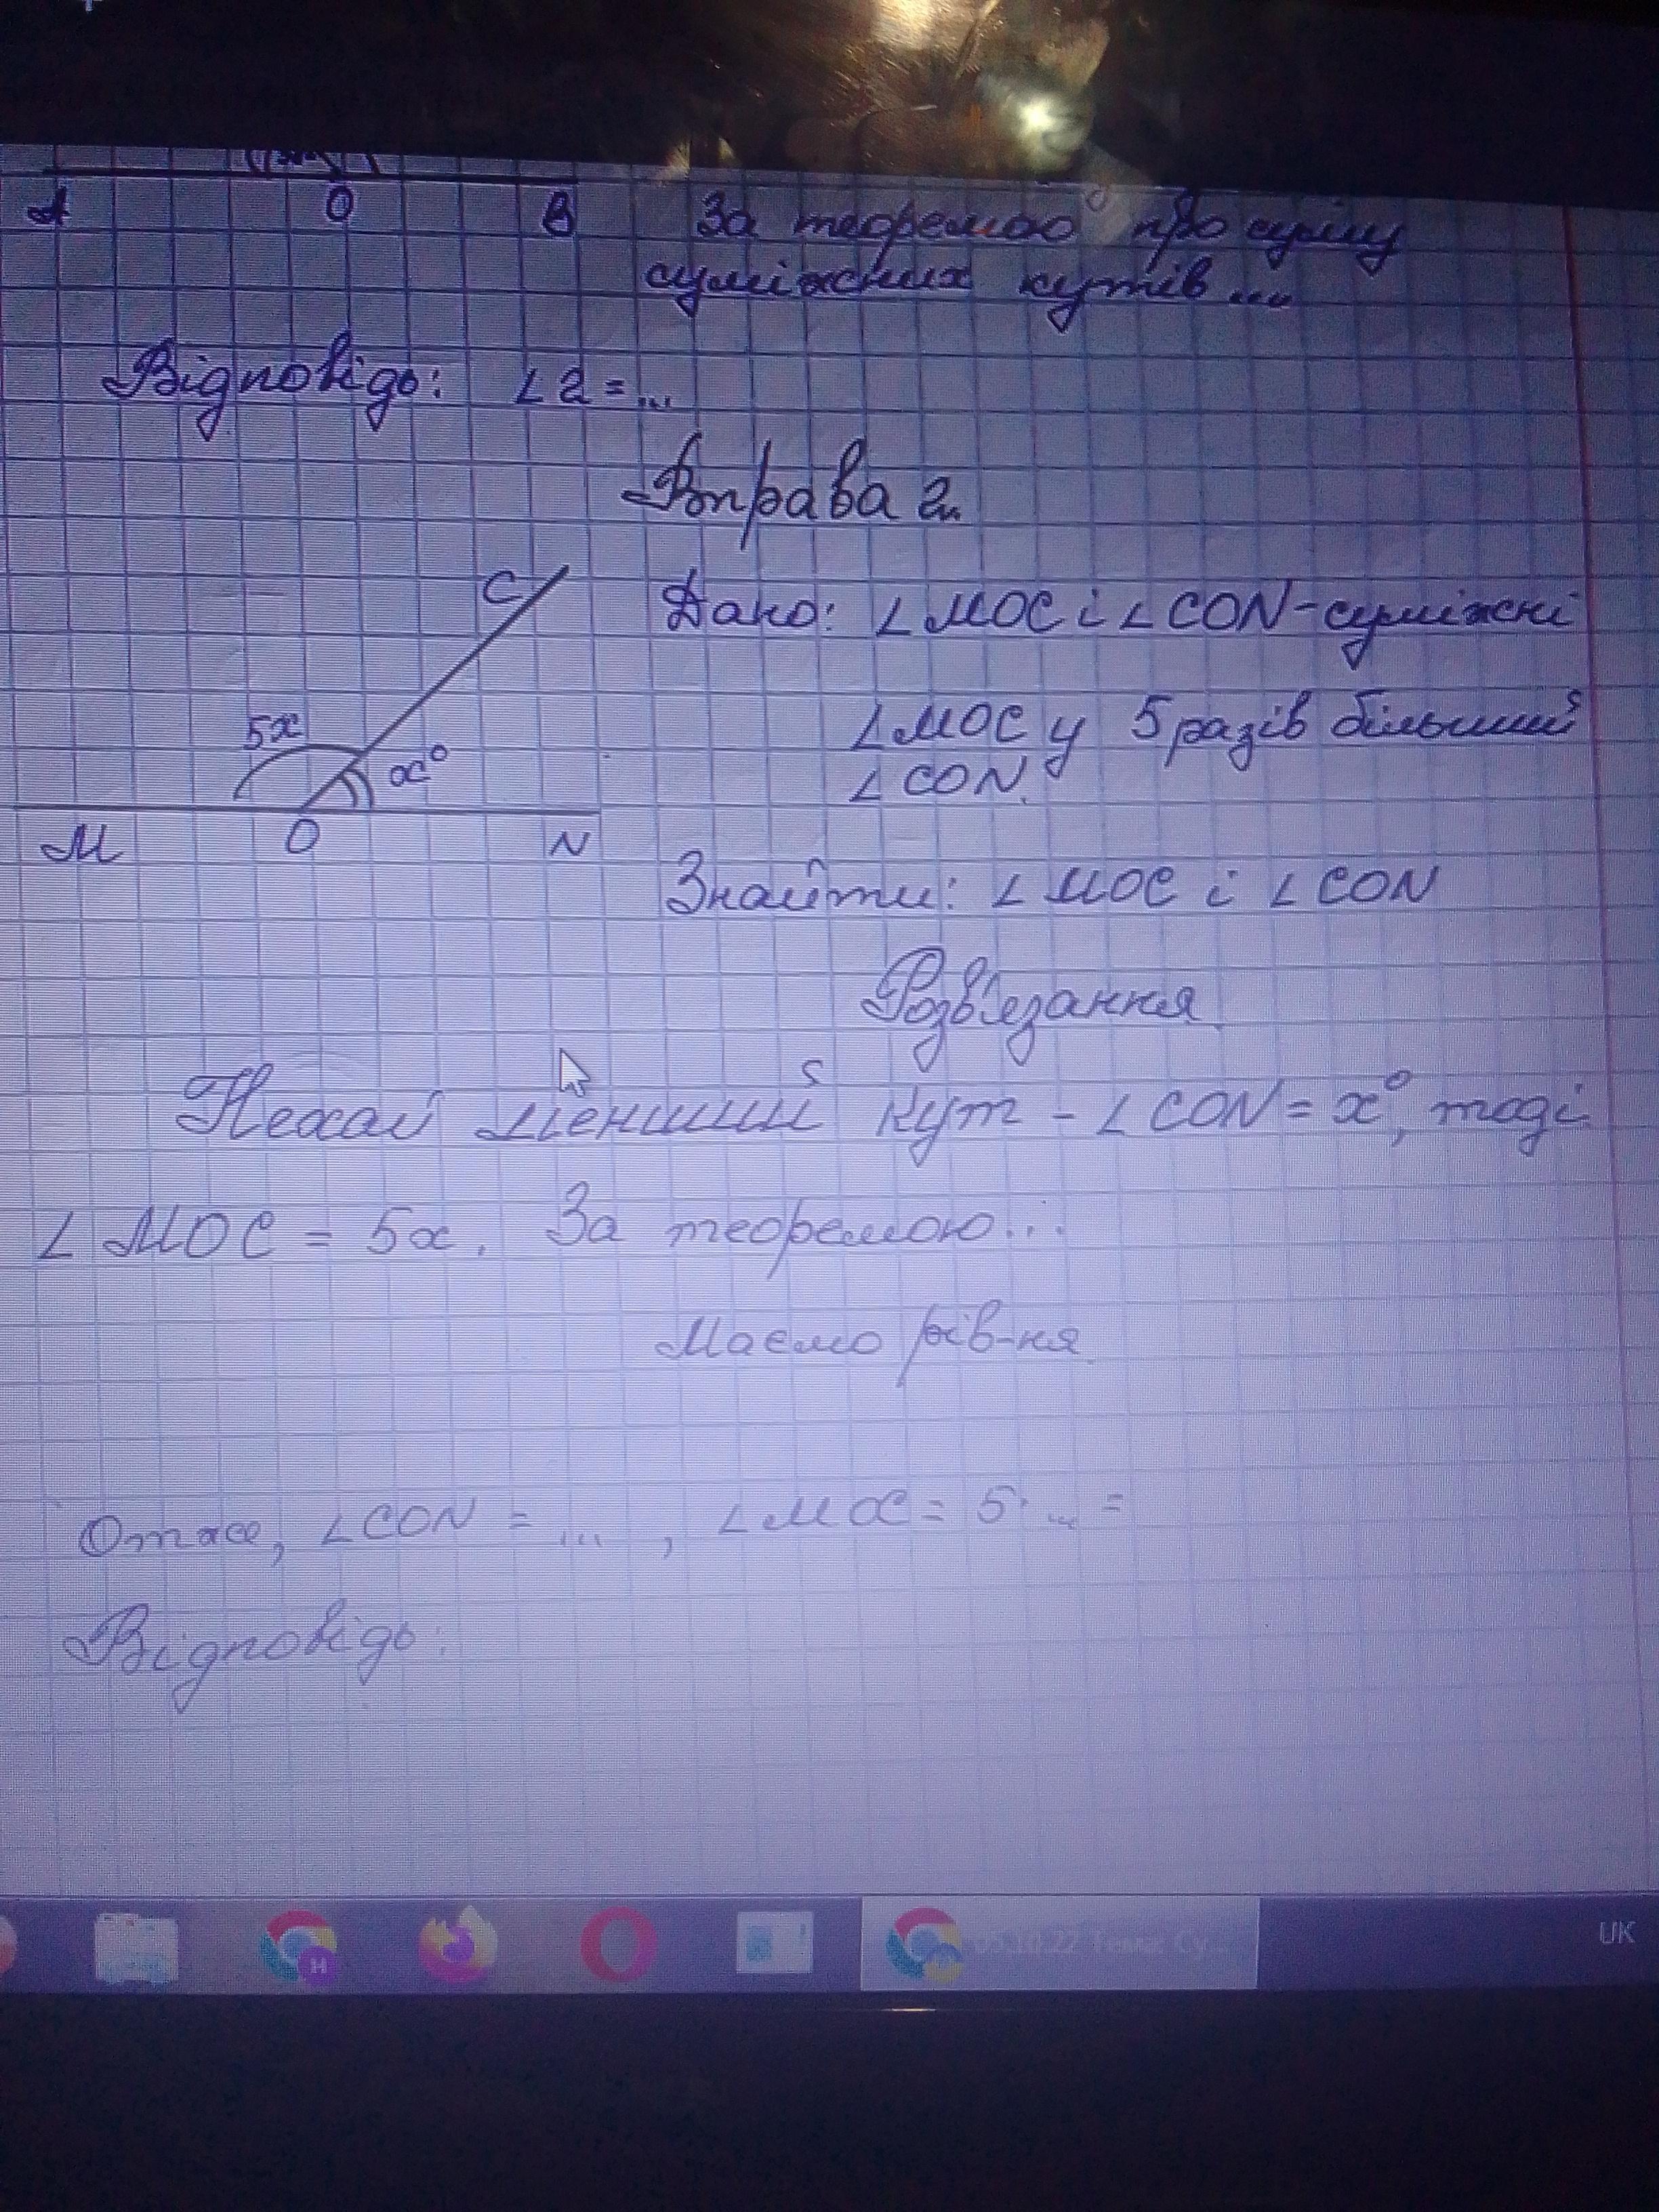 A O B
За теоремою про суму
суміжних кутів ...
Відповідь: ∠2 = ...
Вправа 2.
C
5x
x°
M O N
Дано: ∠MOC і ∠CON - суміжні
∠MOC у 5 разів більший
∠CON.
Знайти: ∠MOC і ∠CON
Розв'язання
Нехай менший кут - ∠CON = x°, тоді
∠MOC = 5x. За теоремою...
Маємо рів-ня
Отже, ∠CON = ... , ∠MOC = 5 · ... =
Відповідь:
H
UK